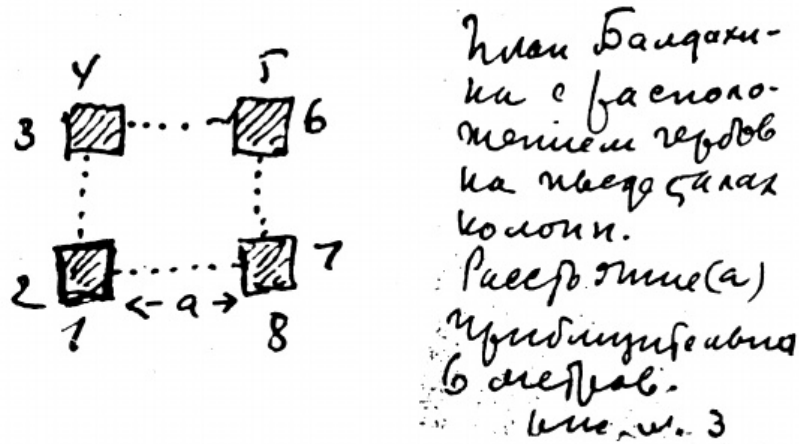 4 5
3 6
2 7
<- a ->
1 8
План Балдахи-
на с располо-
жением гербов
на пьедесталах
колонн.
Расстояние (а)
приблизительно
6 метров.
3